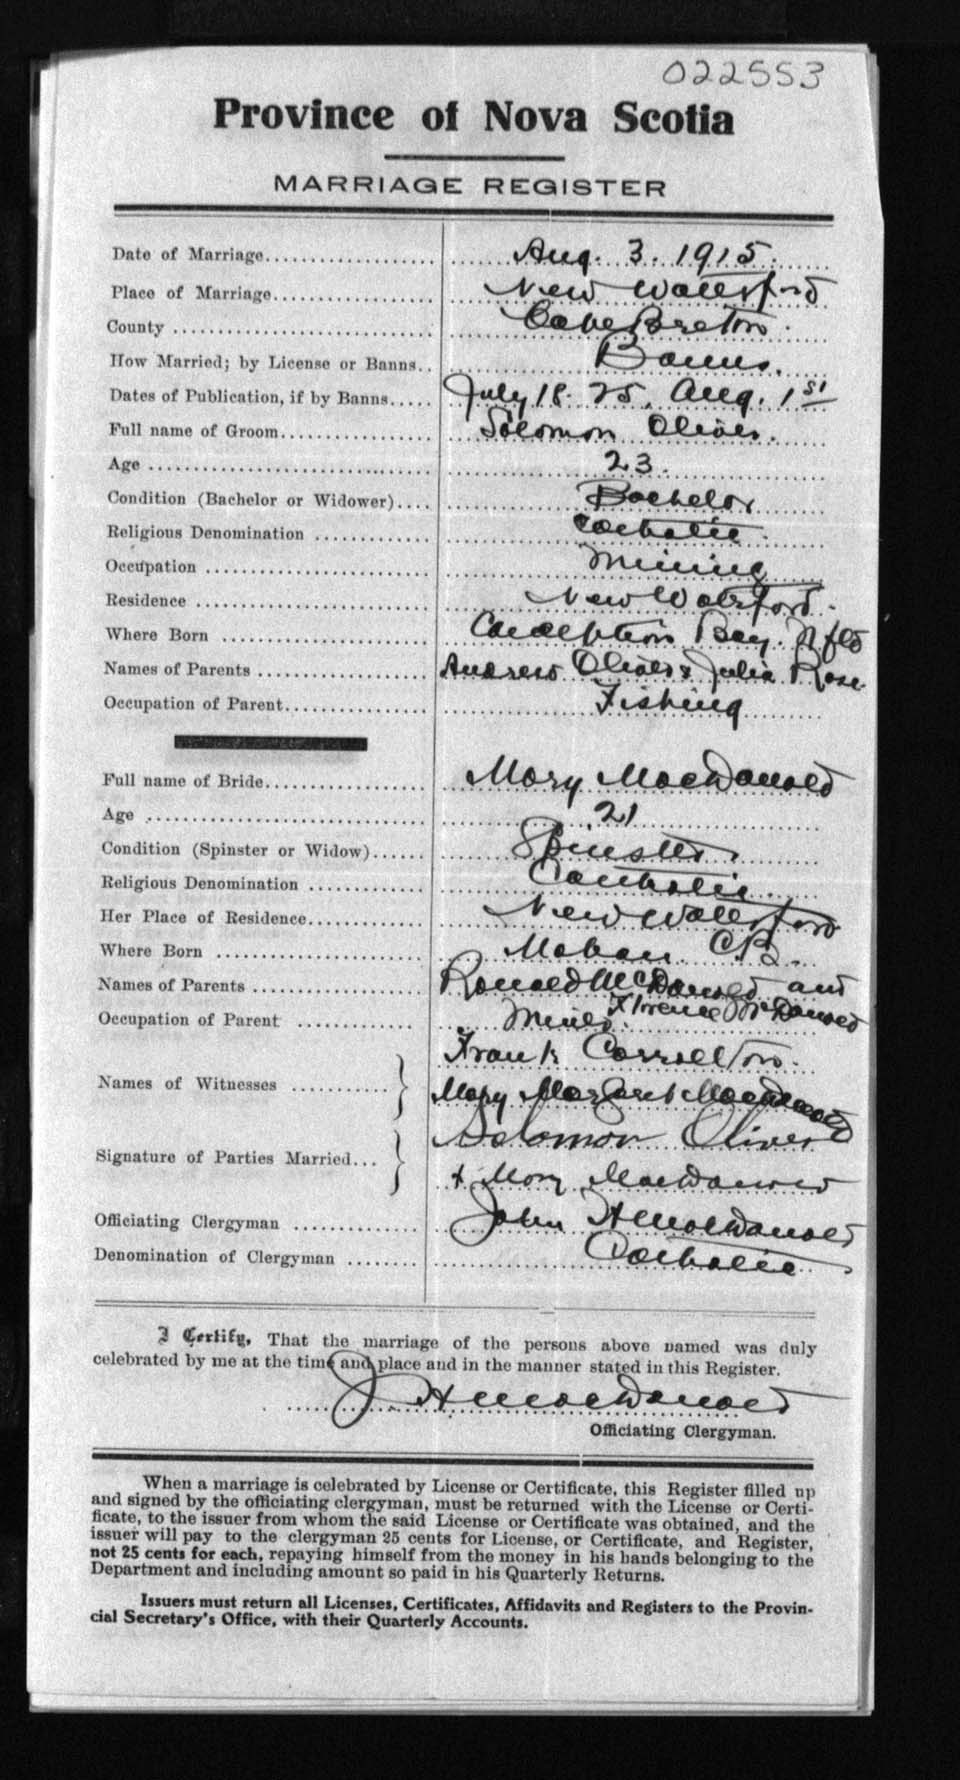 022553
Province of Nova Scotia
MARRIAGE REGISTER
Date of Marriage.................... Aug. 3. 1915.
Place of Marriage................... New Waterford
County .............................. Cape Breton.
How Married; by License or Banns.. Banns.
Dates of Publication, if by Banns..... July 18. 25. Aug. 1st
Full name of Groom................... Solomon Oliver.
Age .................................. 23.
Condition (Bachelor or Widower).... Bachelor
Religious Denomination ............. Catholic.
Occupation .......................... Mining
Residence ........................... New Waterford.
Where Born ......................... Conception Bay. Nfld
Names of Parents .................... Andrew Oliver & Julia Rose.
Occupation of Parent................. Fishing
Full name of Bride................... Mary MacDonald
Age .................................. 21
Condition (Spinster or Widow)...... Spinster.
Religious Denomination ............. Catholic.
Her Place of Residence.............. New Waterford
Where Born ......................... Mabou. C.B.
Names of Parents .................... Ronald McDonald and
Florence McDonald
Occupation of Parent ............... Miner.
Frank Carrollton.
Names of Witnesses ............
Mary Margaret MacDonald
Solomon Oliver
Signature of Parties Married...
+ Mary MacDonald
Officiating Clergyman ............... John H MacDonald
Denomination of Clergyman ........ Catholic
I Certify, That the marriage of the persons above named was duly
celebrated by me at the time and place and in the manner stated in this Register.
J H MacDonald
Officiating Clergyman.
When a marriage is celebrated by License or Certificate, this Register filled up
and signed by the officiating clergyman, must be returned with the License or Certi-
ficate, to the issuer from whom the said License or Certificate was obtained, and the
issuer will pay to the clergyman 25 cents for License, or Certificate, and Register,
not 25 cents for each, repaying himself from the money in his hands belonging to the
Department and including amount so paid in his Quarterly Returns.
Issuers must return all Licenses, Certificates, Affidavits and Registers to the Provin-
cial Secretary's Office, with their Quarterly Accounts.